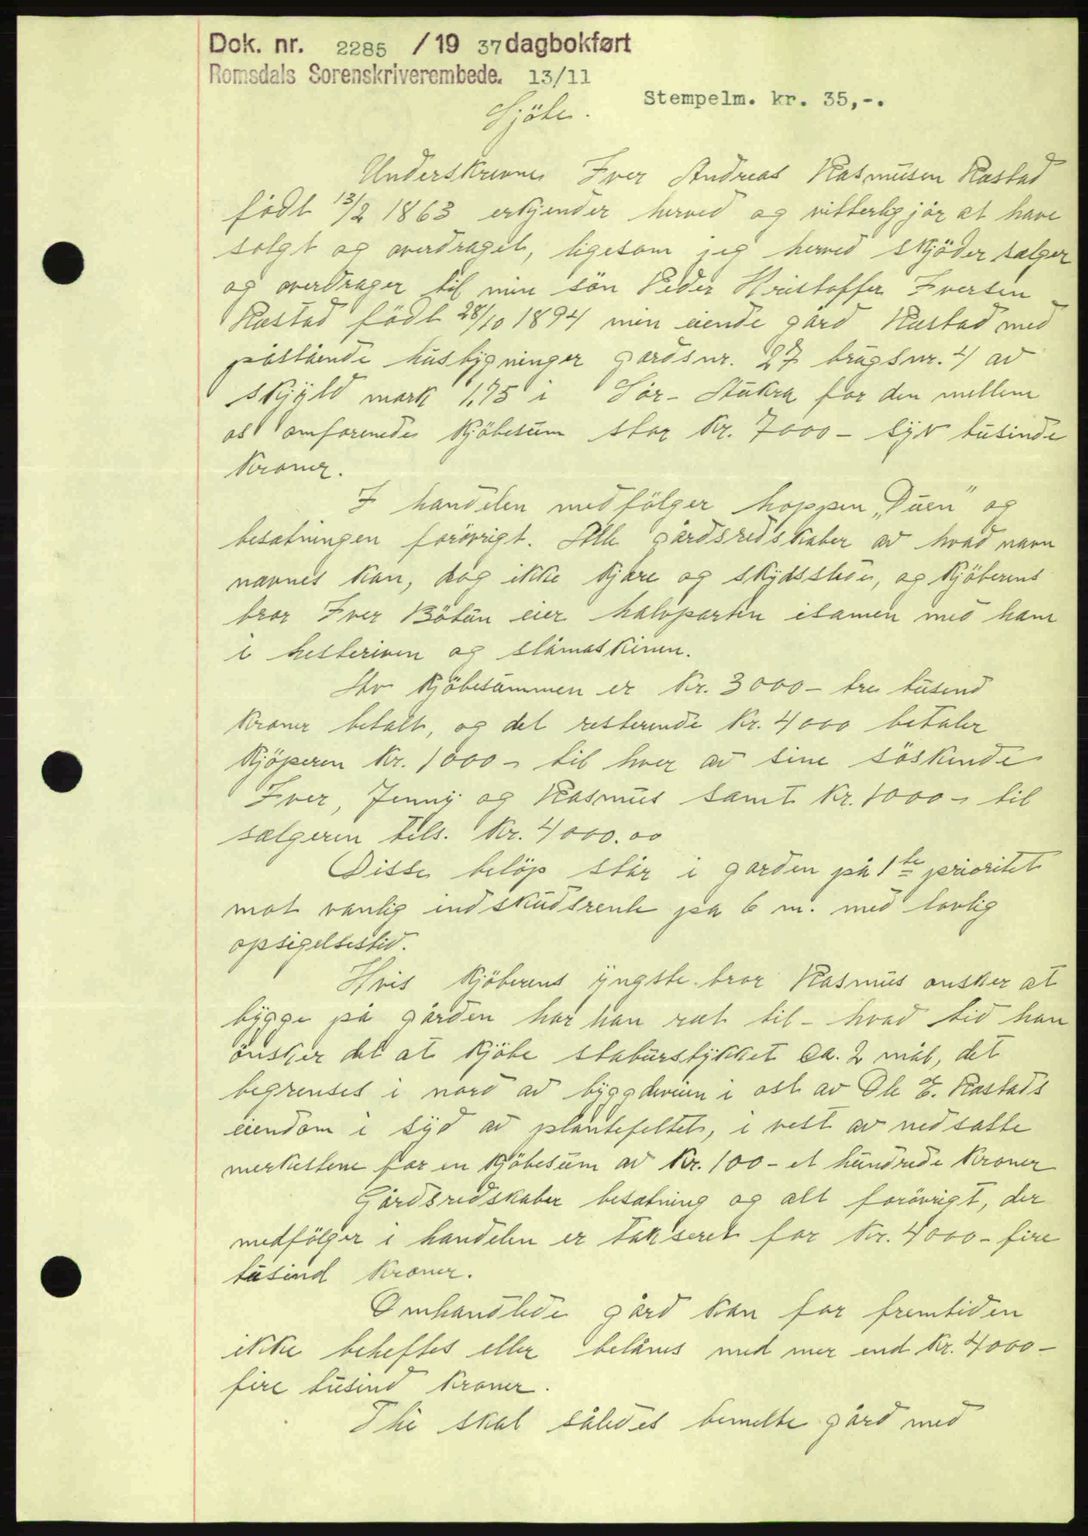 Dok. nr. 2285 / 19 37 dagbokført
Romsdals Sorenskriverembede. 13/11
Stempelm. kr. 35,-.
Sjöte.
Underskrevne Iver Andreas Rasmusen Rastad
født 13/2 1863 erkjender herved og vitterligjör at have
solgt og overdraget, ligesom jeg herved skjöder sælger
og overdrager til min sön Peder Kristoffer Iversen
Rastad födt 28/10 1894 min eiende gård Rastad med
påstående husbygninger gardsnr. 27 brugsnr. 4 av
skyld mark 1,75 i Sör-Aukra for den mellem
os omforenede kjöbesum stor kr. 7000- syv tusinde
kroner.
I handelen medfölger hoppen „Duen" og
besætningen forövrigt. Alle gårdsredskaber av hvad navn
navnes kan, dog ikke kjære og skydsslede, og kjöberens
bror Iver Bötun eier halvparten isamen med ham
i hesteriven og slåmaskinen.
Av kjöbesummen er kr. 3000- tre tusend
kroner betalt, og det resterende kr. 4000 betaler
kjöperen kr. 1000- til hver av sine söskende
Iver, Jenny og Rasmus samt kr. 1000- til
sælgeren tils. kr. 4000.00
Disse belöp står i garden på 1ste prioritet
mot vanlig indskudsrente pa 6 m. med lovlig
opsigelsestid.
Hvis kjöberens yngste bror Rasmus önsker at
bygge på gården har han ret til - hvad tid han
önsker det at kjöbe stabursstykket ca. 2 mål, det
begrenses i nord av byggdeveien i ost av Ole E. Rastads
eiendom i syd av plantefeltet, i vest av nedsatte
merkestene for en kjöbesum av kr. 100- et hundrede kroner
Gårdsredskaber besætning og alt forövrigt, der
medfölger i handelen er takseret for kr. 4000- fire
tusind kroner.
Omhandlede gård kan for fremtiden
ikke beheftes eller belånes med mer end kr. 4000-
fire tusind kroner.
Thi skal således bemelte gård med